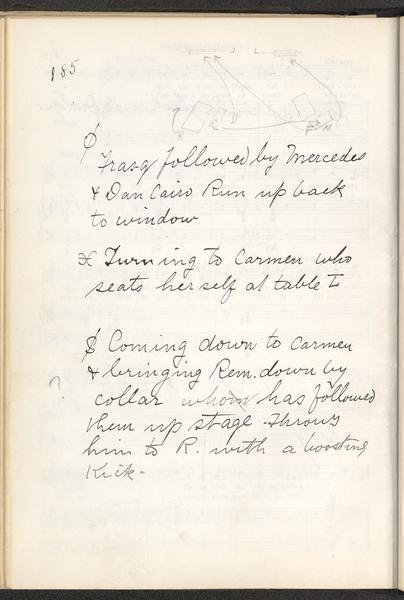 185
Frasq followed by Mercedes
& Dan Cairo Run up back
to window
Turning to Carmen who
seats herself at table L
$ Coming down to Carmen
& bringing Rem. down by
? collar whom has followed
them up stage - Throws
him to R. with a boosting
Kick -